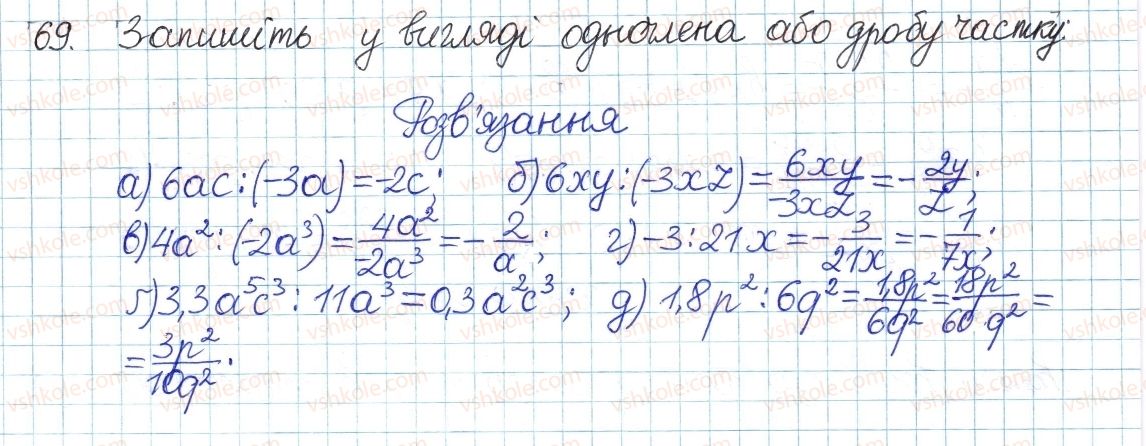 69. Запишіть у вигляді одночлена або дробу частку:
Розв'язання
а) 6ac : (-3a) = -2c; б) 6xy : (-3xz) = 6xy/-3xz = -2y/z;
в) 4a² : (-2a³) = 4a²/-2a³ = -2/a; г) -3 : 21x = -3/21x = -1/7x;
ґ) 3,3a⁵c³ : 11a³ = 0,3a²c³; д) 1,8p² : 6q² = 1,8p²/6q² = 18p²/60q² =
= 3p²/10q².